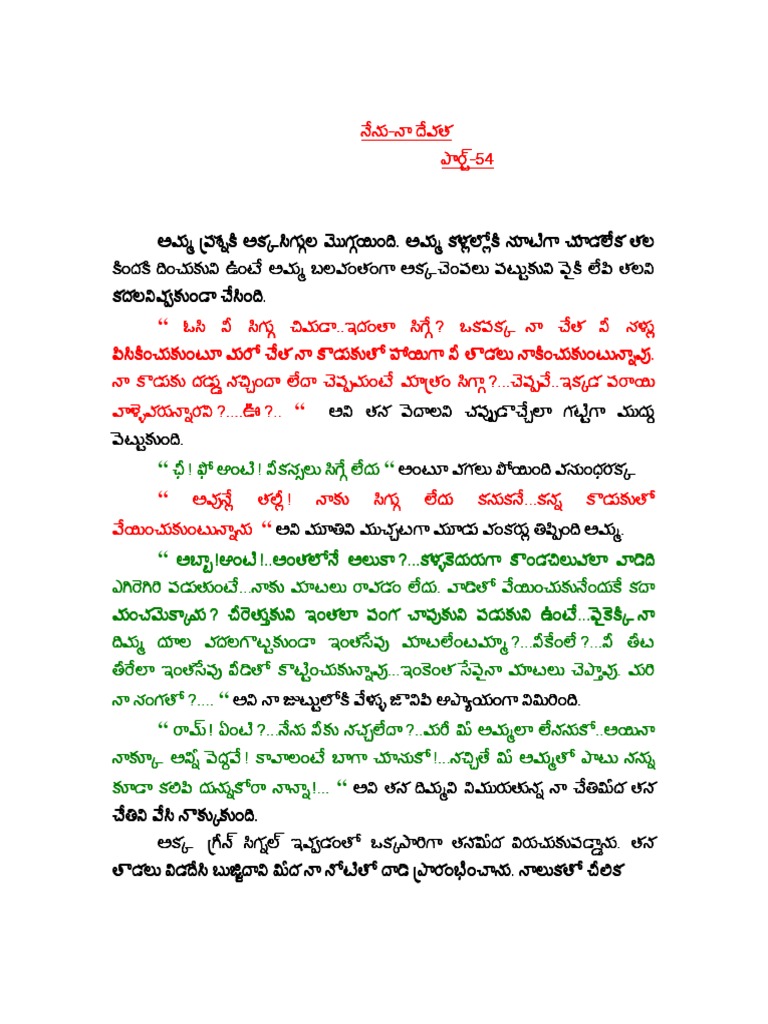 నేను-నా దేవత
పార్ట్-54
అమ్మ ప్రశ్నకి అక్క సిగ్గుల మొగ్గయింది. అమ్మ కళ్లల్లోకి సూటిగా చూడలేక తల
కిందకి దించుకుని ఉంటే అమ్మ బలవంతంగా అక్క చెంపలు పట్టుకుని పైకి లేపి తలని
కదలనివ్వకుండా చేసింది.
“ ఓసి నీ సిగ్గు చిమడా..ఇదంతా సిగ్గే? ఒకపక్క నా చేత నీ సళ్లు
పిసికించుకుంటూ మరో చేత నా కొడుకుతో హాయిగా నీ తొడలు నాకించుకుంటున్నావు.
నా కొడుకు దడ్డు నచ్చిందా లేదా చెప్పమంటే మాత్రం సిగ్గా?...చెప్పవే..ఇక్కడ పరాయి
వాళ్ళెవరున్నారని?....ఊఁ?.. “ అని తన పెదాలని చప్పుడొచ్చేలా గట్టిగా ముద్దు
పెట్టుకుంది.
“ ఛీ! ఫో అంటీ! నీకస్సలు సిగ్గే లేదు “ అంటూ వగలు పోయింది వసుంధరక్క
“ అవున్లే తల్లీ! నాకు సిగ్గు లేదు కనుకనే...కన్న కొడుకుతో
వేయించుకుంటున్నాను “ అని మూతిని ముచ్చటగా మూడు వంకర్లు తిప్పింది అమ్మ.
“ అబ్బా!అంటీ!..అంతలోనే అలుకా?...కళ్ళకెదురుగా కొండచిలువలా వాడిది
ఎగిరెగిరి పడుతుంటే...నాకు మాటలు రావడం లేదు. వాడితో వేయించుకునేందుకే కదా
మంచమెక్కాను? చీరెత్తుకుని ఇంతలా పంగ చాపుకుని పడుకుని ఉంటే...పైకెక్కి నా
దిమ్మ యాల వదలగొట్టకుండా ఇంతసేపు మాటలేంటమ్మా?...నీకేంలే?...నీ తీట
తీరేలా ఇంతసేపు వీడితో కొట్టించుకున్నావు...ఇంకెంత సేపైనా మాటలు చెప్తావు. మరి
నా సంగతో?.... “ అని నా జుట్టులోకి వేళ్ళు జొనిపి ఆప్యాయంగా నిమిరింది.
“ రామ్! ఏంటి?...నేను నీకు నచ్చలేదా?..మరీ మీ అమ్మలా లేననుకో..అయినా
నాక్కూ అన్నీ పెద్దవే! కావాలంటే బాగా చూసుకో!...నచ్చితే మీ అమ్మతో పాటు నన్ను
కూడా కలిపి దున్నుకోరా నాన్నా!... “ అని తన దిమ్మని నిమురుతున్న నా చేతిమీద తన
చేతిని వేసి నొక్కుకుంది.
అక్క గ్రీన్ సిగ్నల్ ఇవ్వడంతో ఒక్కసారిగా తనమీద విరుచుకుపడ్డాను. తన
తొడలు విడదీసి బుజ్జిదాని మీద నా నోటితో దాడి ప్రారంభించాను. నాలుకతో చీలిక